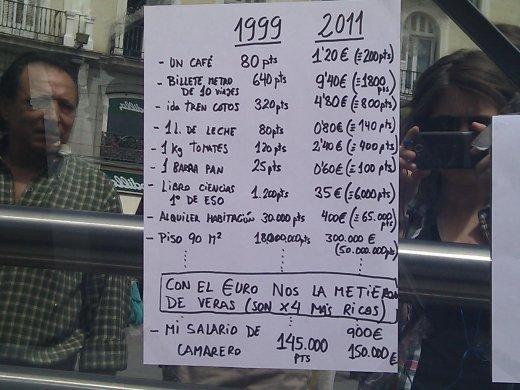 1999 2011
- UN CAFÉ 80 pts 1'20€ (=200pts)
- BILLETE METRO DE 10 VIAJES 640 pts 9'40€ (=1800 pts)
- ida TREN COTOS 320 pts 4'80€ (=800 pts)
- 1 L. DE LECHE 80 pts 0'80€ (=140 pts)
- 1 Kg TOMATES 120 pts 2'40€ (=400 pts)
- 1 BARRA PAN 25 pts 0'60€ (=100 pts)
- LIBRO CIENCIAS 1º DE ESO 1.200 pts 35€ (=6.000 pts)
- ALQUILER HABITACIÓN 30.000 pts 400€ (=65.000 pts)
- PISO 90 m² 300.000 €
(50.000.000 pts)
CON EL €URO NOS LA METIERON
DE VERAS (SON x4 MÁS RICOS)
- MI SALARIO DE CAMARERO 145.000 PTS 900€
150.000 €